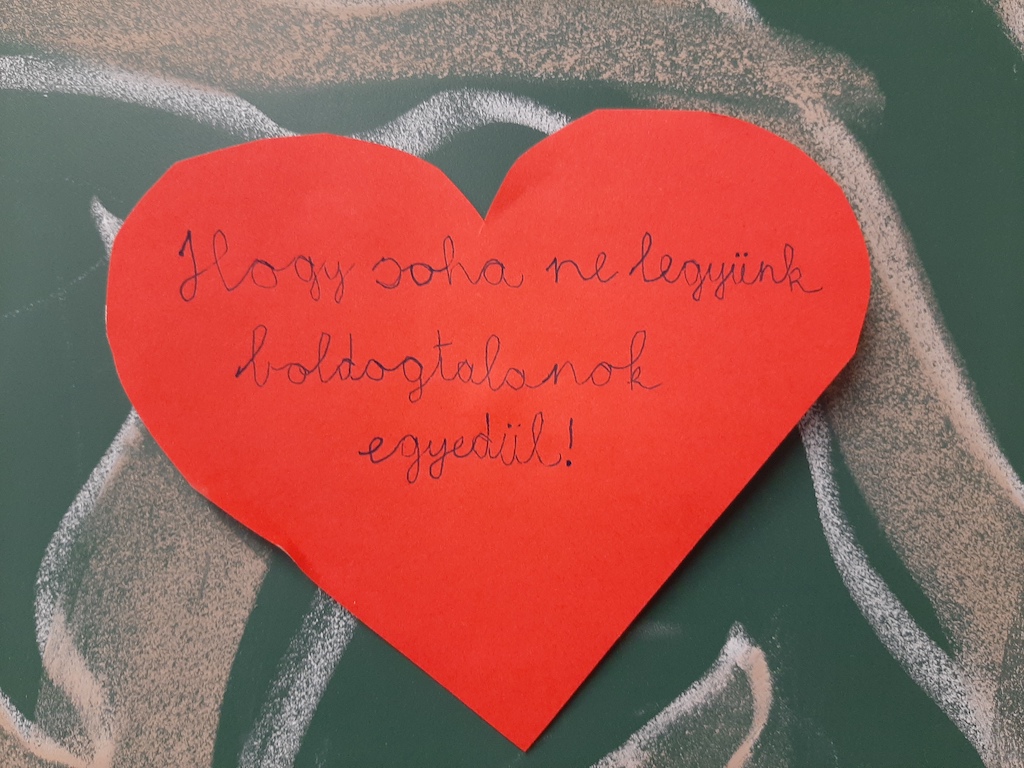 Hogy soha ne legyünk
boldogtalanok
egyedül!